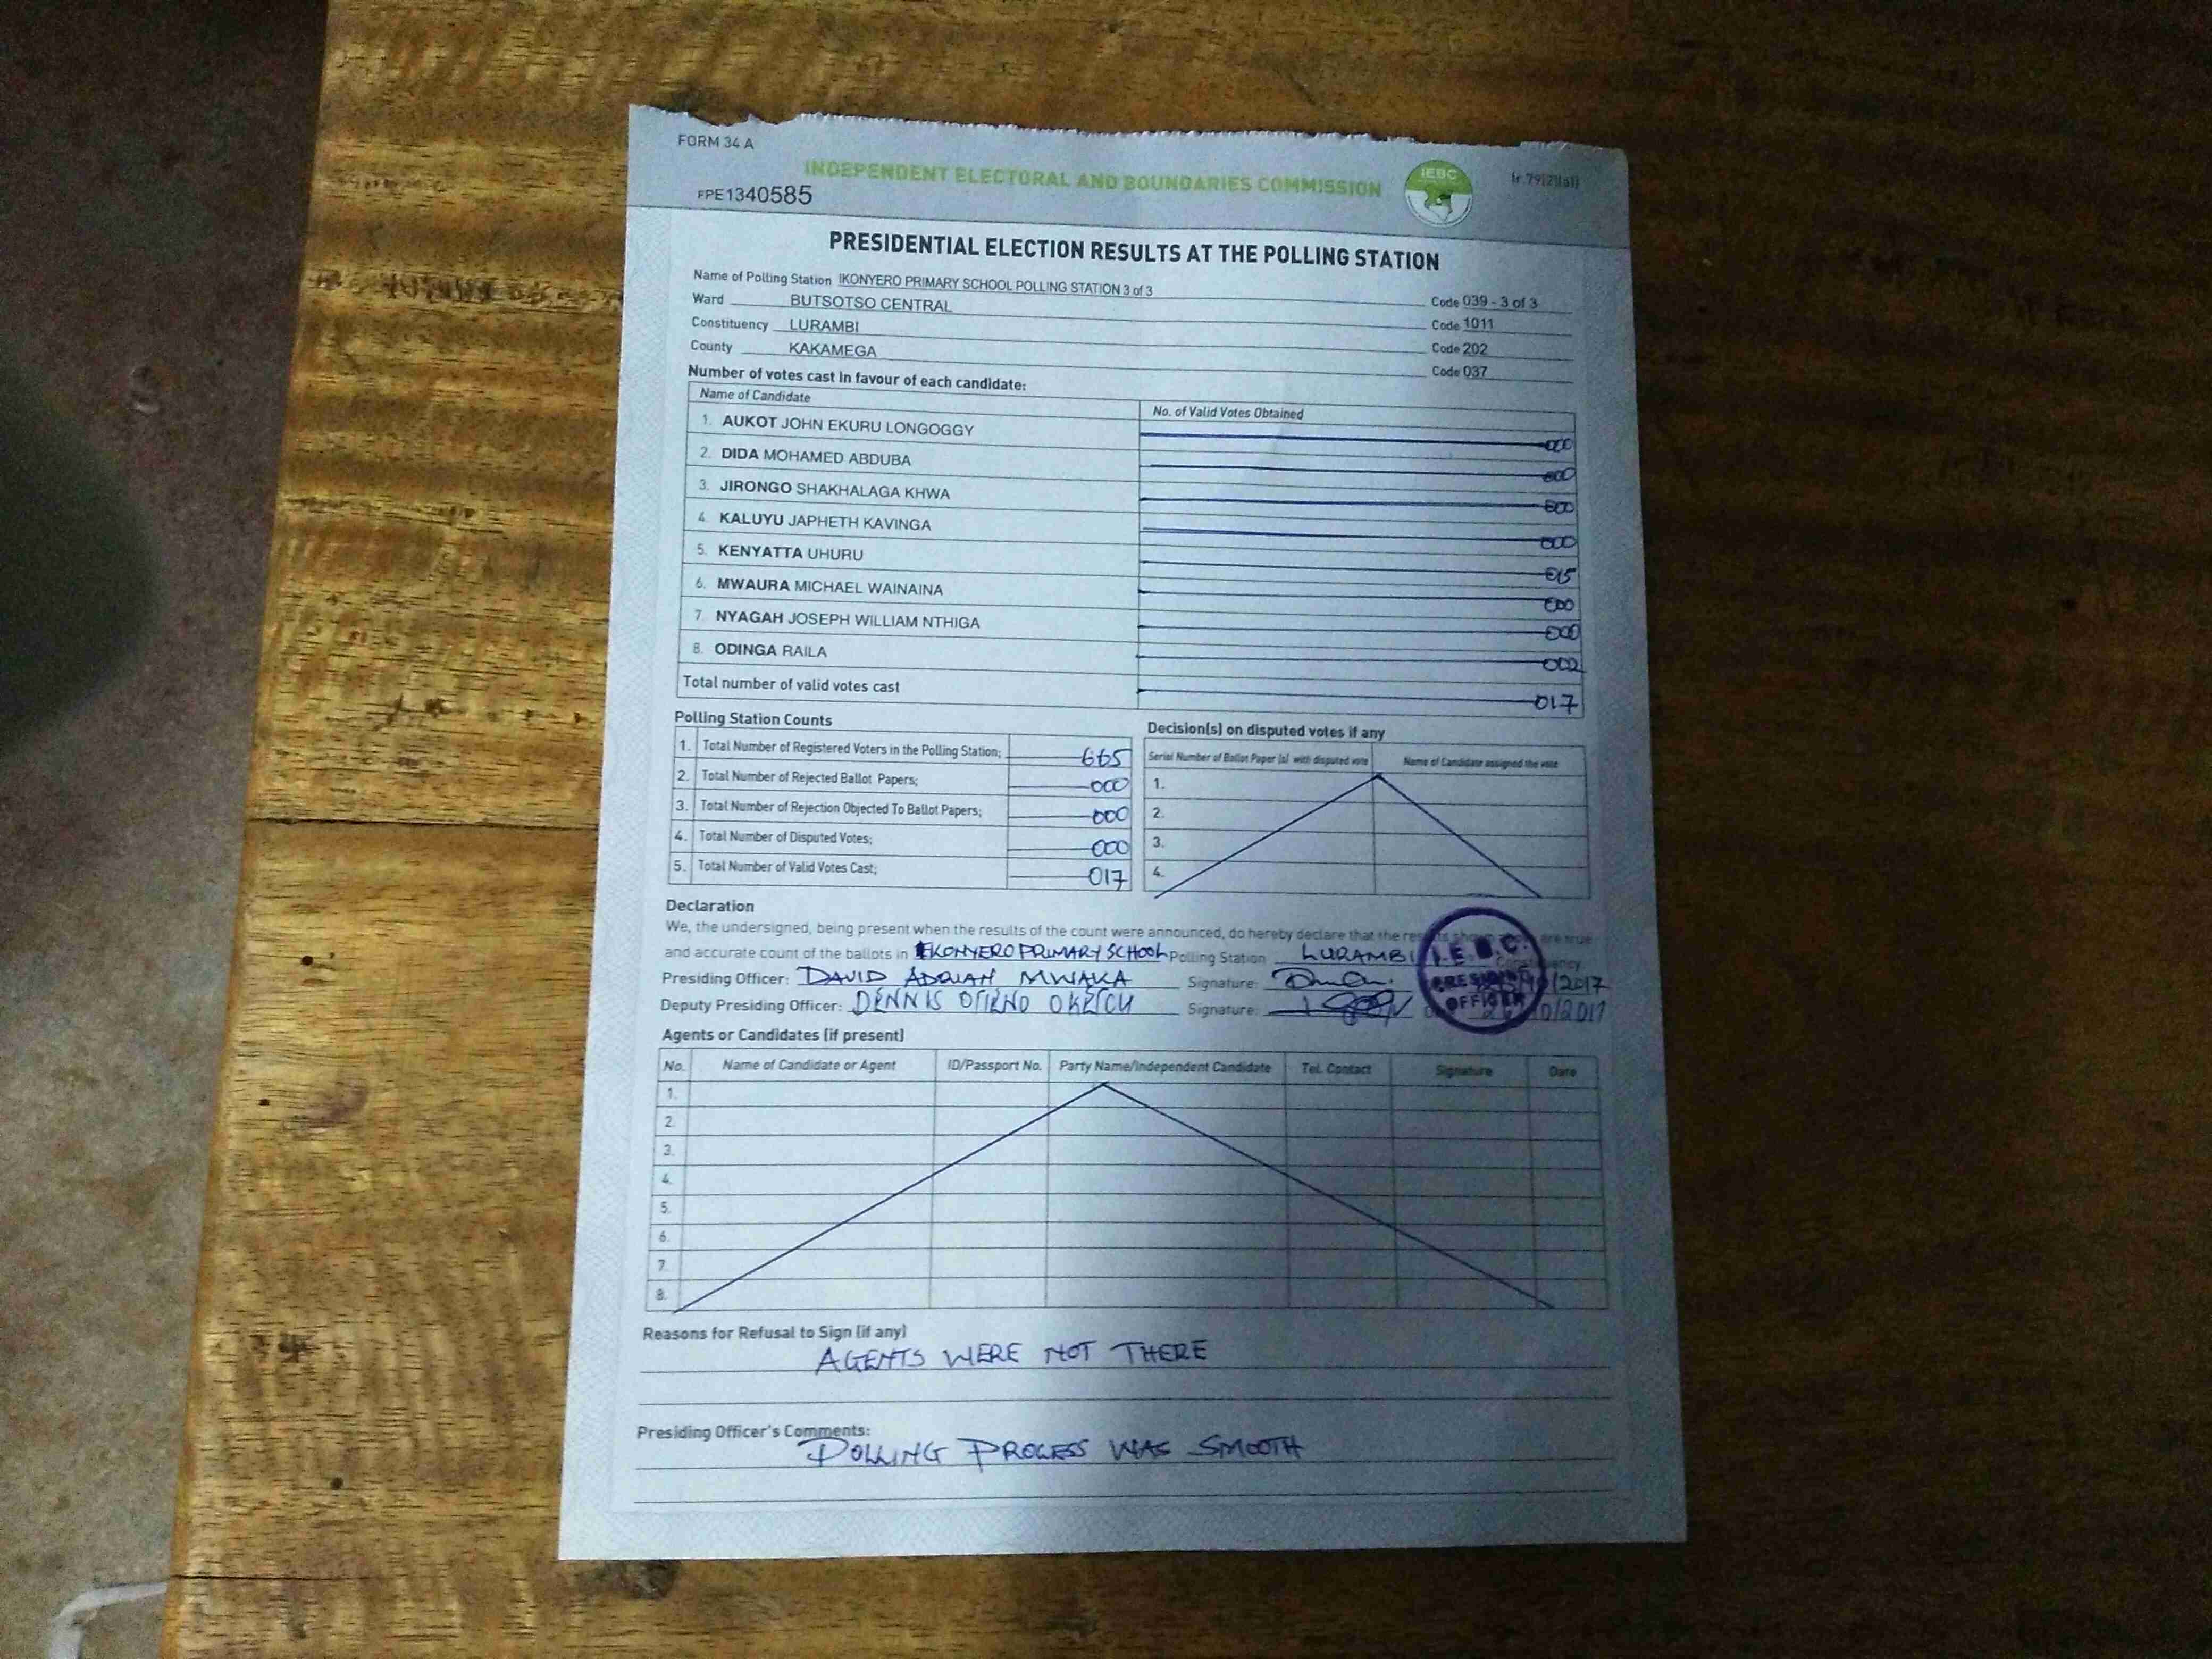 FORM 34 A
INDEPENDENT ELECTORAL AND BOUNDARIES COMMISSION
IEBC
(r.79(2)(a))
FPE1340585
PRESIDENTIAL ELECTION RESULTS AT THE POLLING STATION
Name of Polling Station IKONYERO PRIMARY SCHOOL POLLING STATION 3 of 3 Code 039 - 3 of 3
Ward BUTSOTSO CENTRAL Code 1011
Constituency LURAMBI Code 202
County KAKAMEGA Code 037
Number of votes cast in favour of each candidate:
Name of Candidate No. of Valid Votes Obtained
1. AUKOT JOHN EKURU LONGOGGY 000
2. DIDA MOHAMED ABDUBA 000
3. JIRONGO SHAKHALAGA KHWA 000
4. KALUYU JAPHETH KAVINGA 000
5. KENYATTA UHURU 015
6. MWAURA MICHAEL WAINAINA 000
7. NYAGAH JOSEPH WILLIAM NTHIGA 000
8. ODINGA RAILA 002
Total number of valid votes cast 017
Polling Station Counts
1. Total Number of Registered Voters in the Polling Station; 665
2. Total Number of Rejected Ballot Papers; 000
3. Total Number of Rejection Objected To Ballot Papers; 000
4. Total Number of Disputed Votes; 000
5. Total Number of Valid Votes Cast; 017
Decision(s) on disputed votes if any
Serial Number of Ballot Paper (s) with disputed vote Name of Candidate assigned the vote
1.
2.
3.
4.
Declaration
We, the undersigned, being present when the results of the count were announced, do hereby declare that the are true
and accurate count of the ballots in IKONYERO PRIMARY SCHOOL Polling Station LURAMBI
Presiding Officer: DAVID ADRIAH MWAKA Signature: /2017
Deputy Presiding Officer: DENNIS OTIENO OKETCH Signature: 0/2017
I.E.B.C.
PRESIDING
OFFICER
Agents or Candidates (if present)
No. Name of Candidate or Agent ID/Passport No. Party Name/Independent Candidate Tel. Contact Signature Date
1.
2.
3.
4.
5.
6.
7.
8.
Reasons for Refusal to Sign (if any)
AGENTS WERE NOT THERE
Presiding Officer's Comments:
POLLING PROCESS WAS SMOOTH